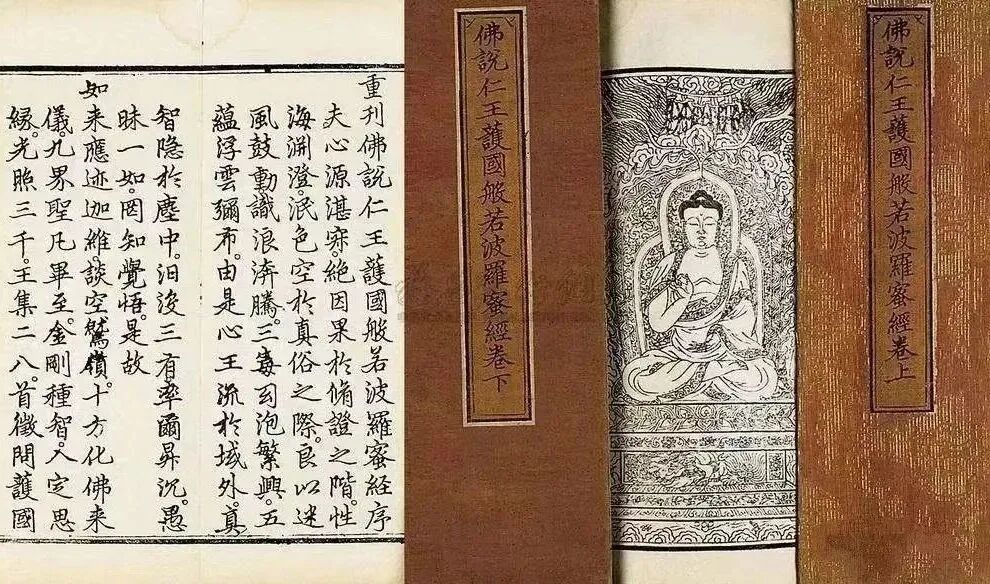 佛說仁王護國般若波羅蜜經卷上
佛說仁王護國般若波羅蜜經卷下
重刊佛說仁王護國般若波羅蜜经序
夫心源湛寂。絕因果於脩證之階。性
海渊澄。泯色空於真俗之際。良以迷
風鼓動。識浪濟騰。三毒幻泡繁興。五
蘊浮雲彌布。由是心王流於域外。真
智隐於塵中。汨没三有。率爾昇沉。愚
昧一如。罔知覺悟。是故
如来應迹迦維。談空鷲嶺。十方化佛来
儀。九界聖凡畢至。金剛種智。入定思
縁。光照三千。王集二八。首徵問護國